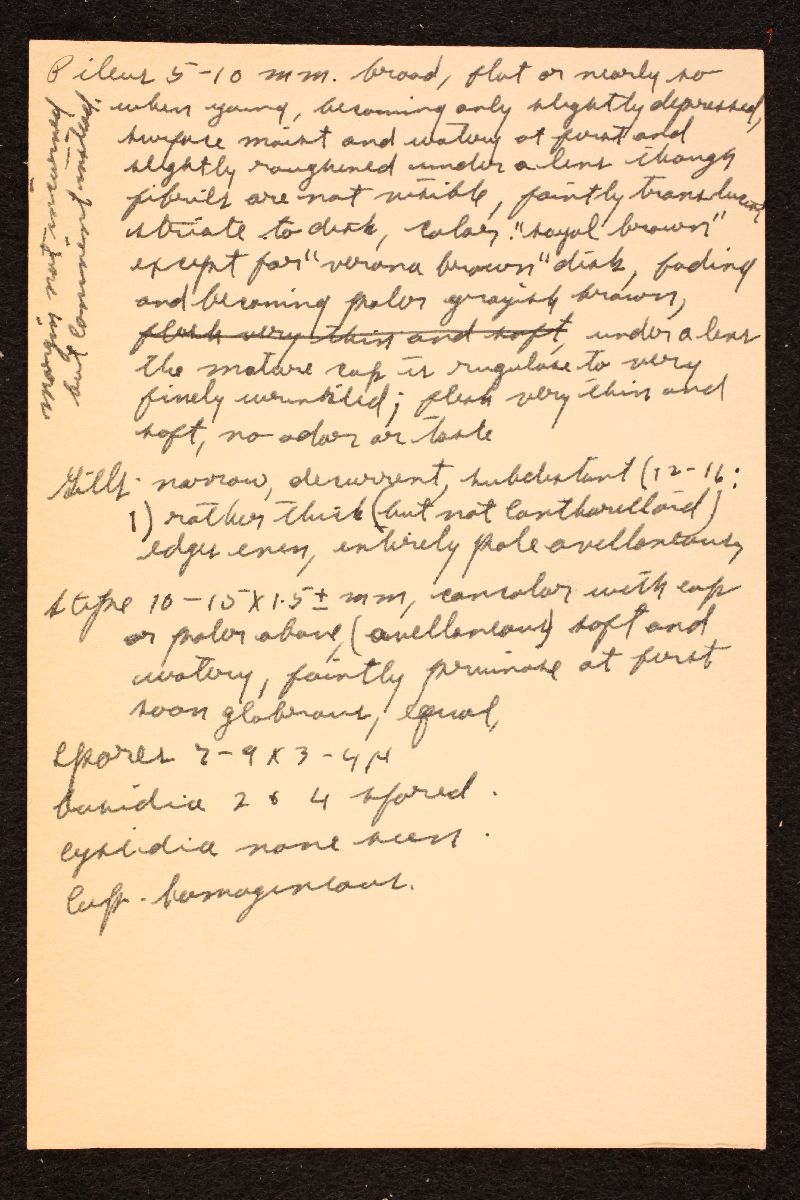 Pileus 5-10 mm. broad, flat or nearly so
when young, becoming only slightly depressed,
surface moist and watery at first and
slightly roughened under a lens though
fibrils are not visible, faintly translucent
striate to disk, color "sayal brown"
except for "verona brown" disk, fading
and becoming paler grayish brown,
flesh very thin and soft, under a lens
the mature cap is rugulose to very
finely wrinkled; flesh very thin and
soft, no odor or taste
margin not incurved
but connivent instead;
Gills - narrow, decurrent, subdistant (12-16;
1) rather thick (but not Cantharelloid)
edges even, entirely pale avellaneous,
stipe 10-15 X 1.5± mm, concolor with cap
or paler above, (avellaneous) soft and
watery, faintly pruinose at first
soon glabrous, equal,
spores 7-9 X 3-4 µ
basidia 2 & 4 spored.
cystidia none seen.
Cap - homogeneous.